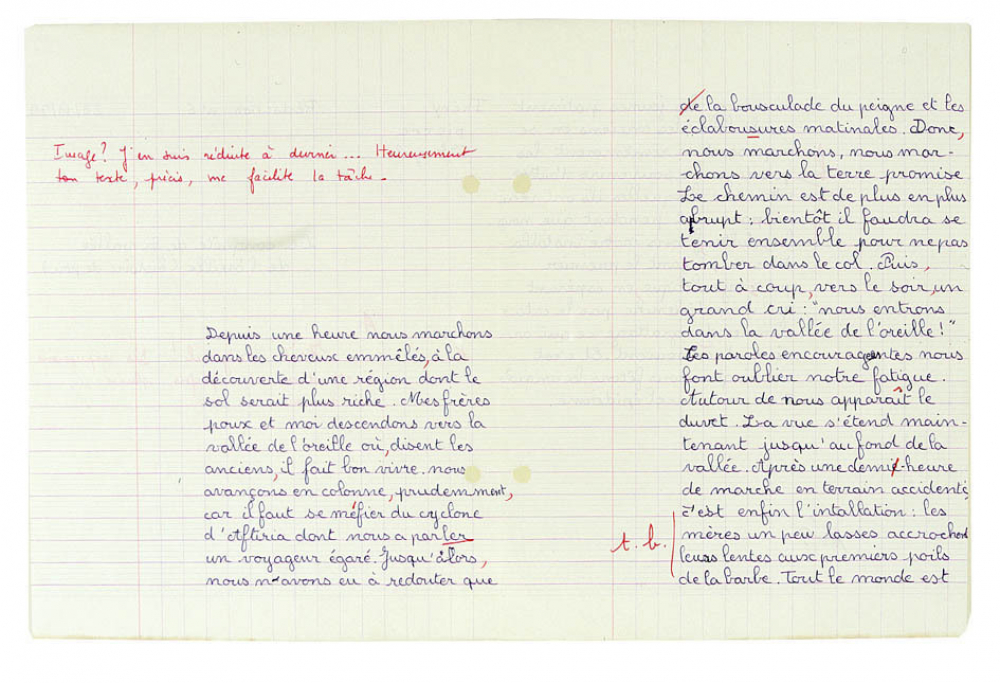 Image? J'en suis réduite à deviner... Heureusement
ton texte, précis, me facilite la tâche.
Depuis une heure nous marchons
dans les cheveux emmêlés, à la
découverte d'une région dont le
sol serait plus riche. Mes frères
poux et moi descendons vers la
vallée de l'oreille où, disent les
anciens, il fait bon vivre. nous
avançons en colonne, prudemment,
car il faut se méfier du cyclone
d'Aftiria dont nous a parler
un voyageur égaré. Jusqu'alors,
nous n'avons eu à redouter que
de la bousculade du peigne et les
éclabousures matinales. Donc,
nous marchons, nous mar-
chons vers la terre promise
Le chemin est de plus en plus
abrupt : bientôt il faudra se
tenir ensemble pour ne pas
tomber dans le col. Puis,
tout à coup, vers le soir, un
grand cri : "nous entrons
dans la vallée de l'oreille !"
Les paroles encourageantes nous
font oublier notre fatigue.
Autour de nous apparaît le
duvet. La vue s'étend main-
tenant jusqu'au fond de la
vallée. Après une demie-heure
de marche en terrain accidenté
c'est enfin l'intallation : les
mères un peu lasses accrochent
t.b. leurs lentes aux premiers poils
de la barbe. Tout le monde est